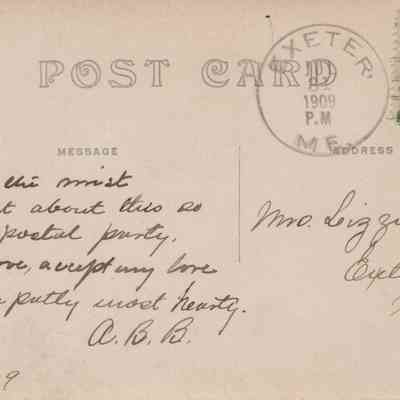 POST CARD
EXETER,
1909
P.M
ME.
MESSAGE
ADDRESS
the mist
t about this so
postal party.
ove, accept my love
most hearty.
A. B. B.
9
Mrs. Lizzi
Exet